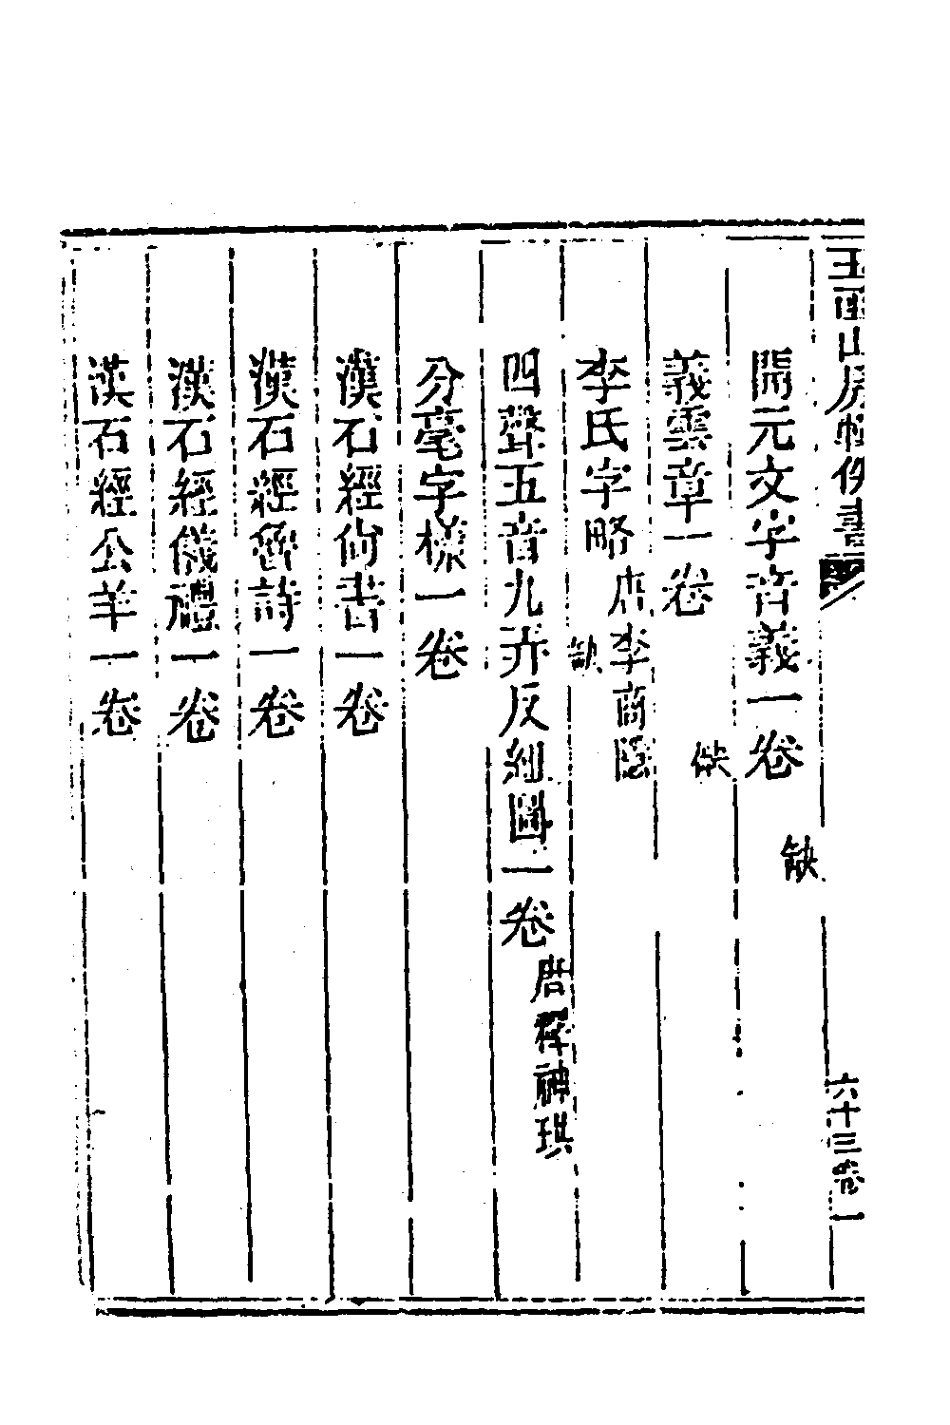 玉函山房輯佚書
六十三卷 一
開元文字音義一卷 缺
義雲章一卷 缺
李氏字略 唐李商隱 缺
四聲五音九弄反紐圖一卷 唐釋神珙
分毫字樣一卷
漢石經尚書一卷
漢石經魯詩一卷
漢石經儀禮一卷
漢石經公羊一卷